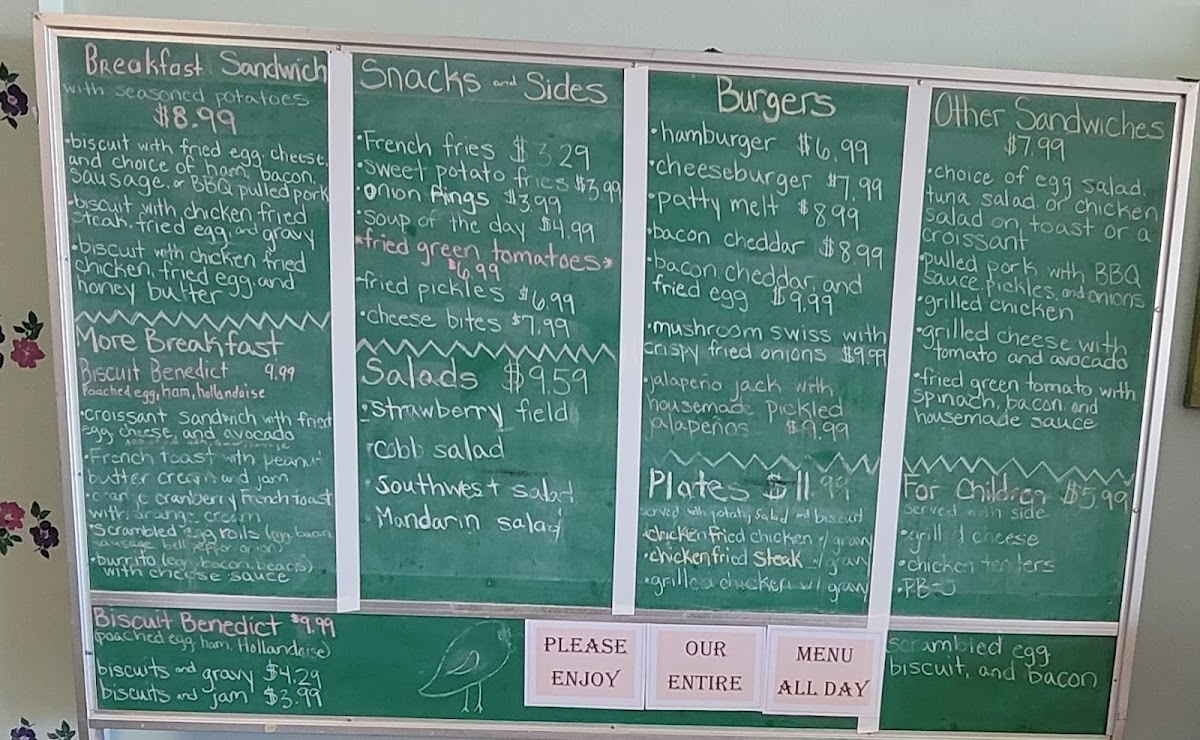 Breakfast Sandwich
with seasoned potatoes
$8.99
•biscuit with fried egg, cheese,
and choice of ham, bacon,
sausage, or BBQ pulled pork
•biscuit with chicken fried
steak, fried egg, and gravy
•biscuit with chicken fried
chicken, fried egg, and
honey butter
More Breakfast
Biscuit Benedict 9.99
Poached egg, ham, hollandaise
•croissant sandwich with fried
egg, cheese, and avocado
•French toast with peanut
butter cream and jam
cranberry French toast
with orange cream
•scrambled egg rolls (egg, bacon,
sausage, bell pepper, onion)
•burrito (egg, bacon, beans)
with cheese sauce
Biscuit Benedict $9.99
(poached egg, ham, Hollandaise)
biscuits and gravy $4.29
biscuits and jam $3.99
Snacks and Sides
•French fries $3.29
•sweet potato fries $3.99
•Onion Rings $3.99
•soup of the day $4.99
*fried green tomatoes*
$6.99
•fried pickles $6.99
•cheese bites $7.99
Salads $9.59
•strawberry field
•Cobb salad
•Southwest salad
•Mandarin salad
Burgers
•hamburger $6.99
•cheeseburger $7.99
•patty melt $8.99
•bacon cheddar $8.99
•bacon, cheddar, and
fried egg $9.99
•mushroom swiss with
crispy fried onions $9.99
•jalapeño jack with
housemade pickled
jalapeños $9.99
Plates $11.99
served with potato, salad and biscuit
•chicken fried chicken w/ gravy
•chicken fried steak w/ gravy
•grilled chicken w/ gravy
Other Sandwiches
$7.99
•choice of egg salad,
tuna salad, or chicken
salad on toast or a
croissant
•pulled pork with BBQ
sauce, pickles, and onions
•grilled chicken
•grilled cheese with
tomato and avocado
•fried green tomato with
spinach, bacon, and
housemade sauce
For Children $5.99
served with side
•grilled cheese
•chicken tenders
•PB-J
scrambled egg,
biscuit, and bacon
PLEASE
ENJOY
OUR
ENTIRE
MENU
ALL DAY